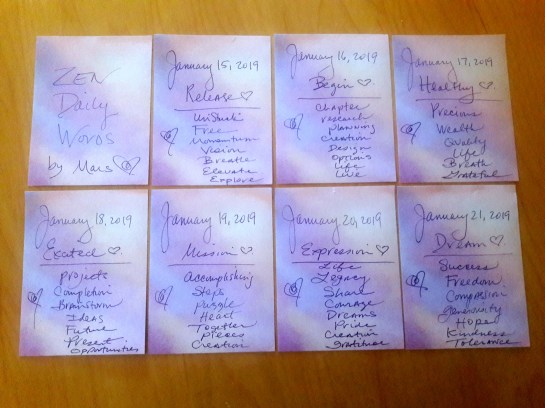 ZEN
Daily
Words
by Mars
January 15, 2019
Release
UnStuck
Free
Momentum
Vision
Breathe
Elevate
Explore
January 16, 2019
Begin
Chapter
research
Planning
Creation
Design
Options
Life
Live
January 17, 2019
Healthy
Precious
Wealth
Quality
Life
Breath
Grateful
January 18, 2019
Excited
Projects
Completion
Brainstorm
Ideas
Future
Present
Opportunities
January 19, 2019
Mission
Accomplishing
Steps
Puzzle
Heart
Together
Pieces
Creation
January 20, 2019
Expression
Life
Legacy
Share
Courage
Dreams
Pride
Creation
Gratitude
January 21, 2019
Dream
Success
Freedom
Compassion
Generosity
Hope
Kindness
Tolerance